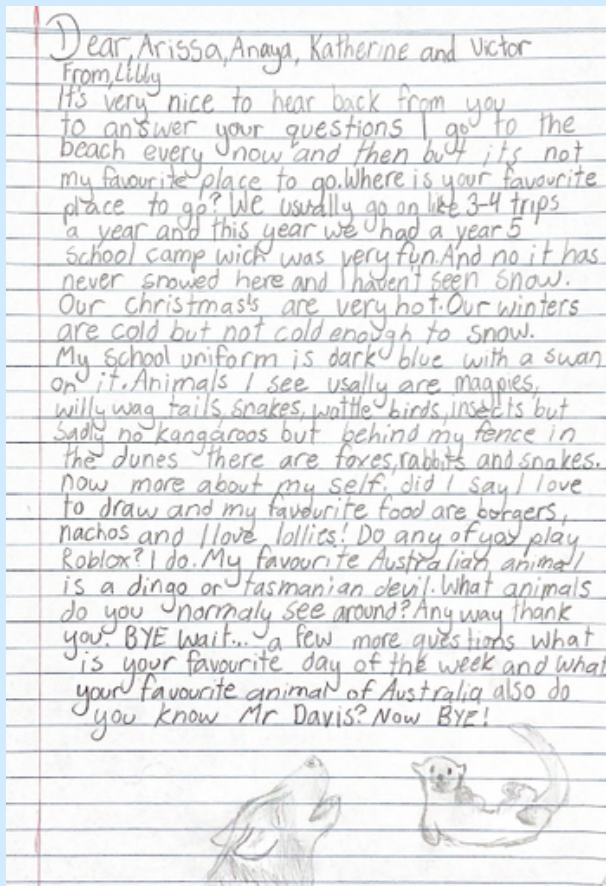 Dear, Arissa, Anaya, Katherine and Victor
From, Lilly
It's very nice to hear back from you
to answer your questions I go to the
beach every now and then but its not
my favourite place to go. Where is your favourite
place to go? We usually go on like 3-4 trips
a year and this year we had a year 5
school camp wich was very fun. And no it has
never snowed here and I haven't seen snow.
Our christmas's are very hot. Our winters
are cold but not cold enough to snow.
My school uniform is dark blue with a swan
on it. Animals I see usally are magpies,
willy wag tails, snakes, wattle birds, insects but
sadly no kangaroos but behind my fence in
the dunes there are foxes, rabbits and snakes.
now more about my self. did I say I love
to draw and my favourite food are borgers,
nachos and I love lollies! Do any of you play
Roblox? I do. My favourite Australian animal
is a dingo or tasmanian devil. What animals
do you normaly see around? Any way thank
you. BYE wait... a few more questions what
is your favourite day of the week and what
your favourite animal of Australia also do
you know Mr Davis? Now BYE!